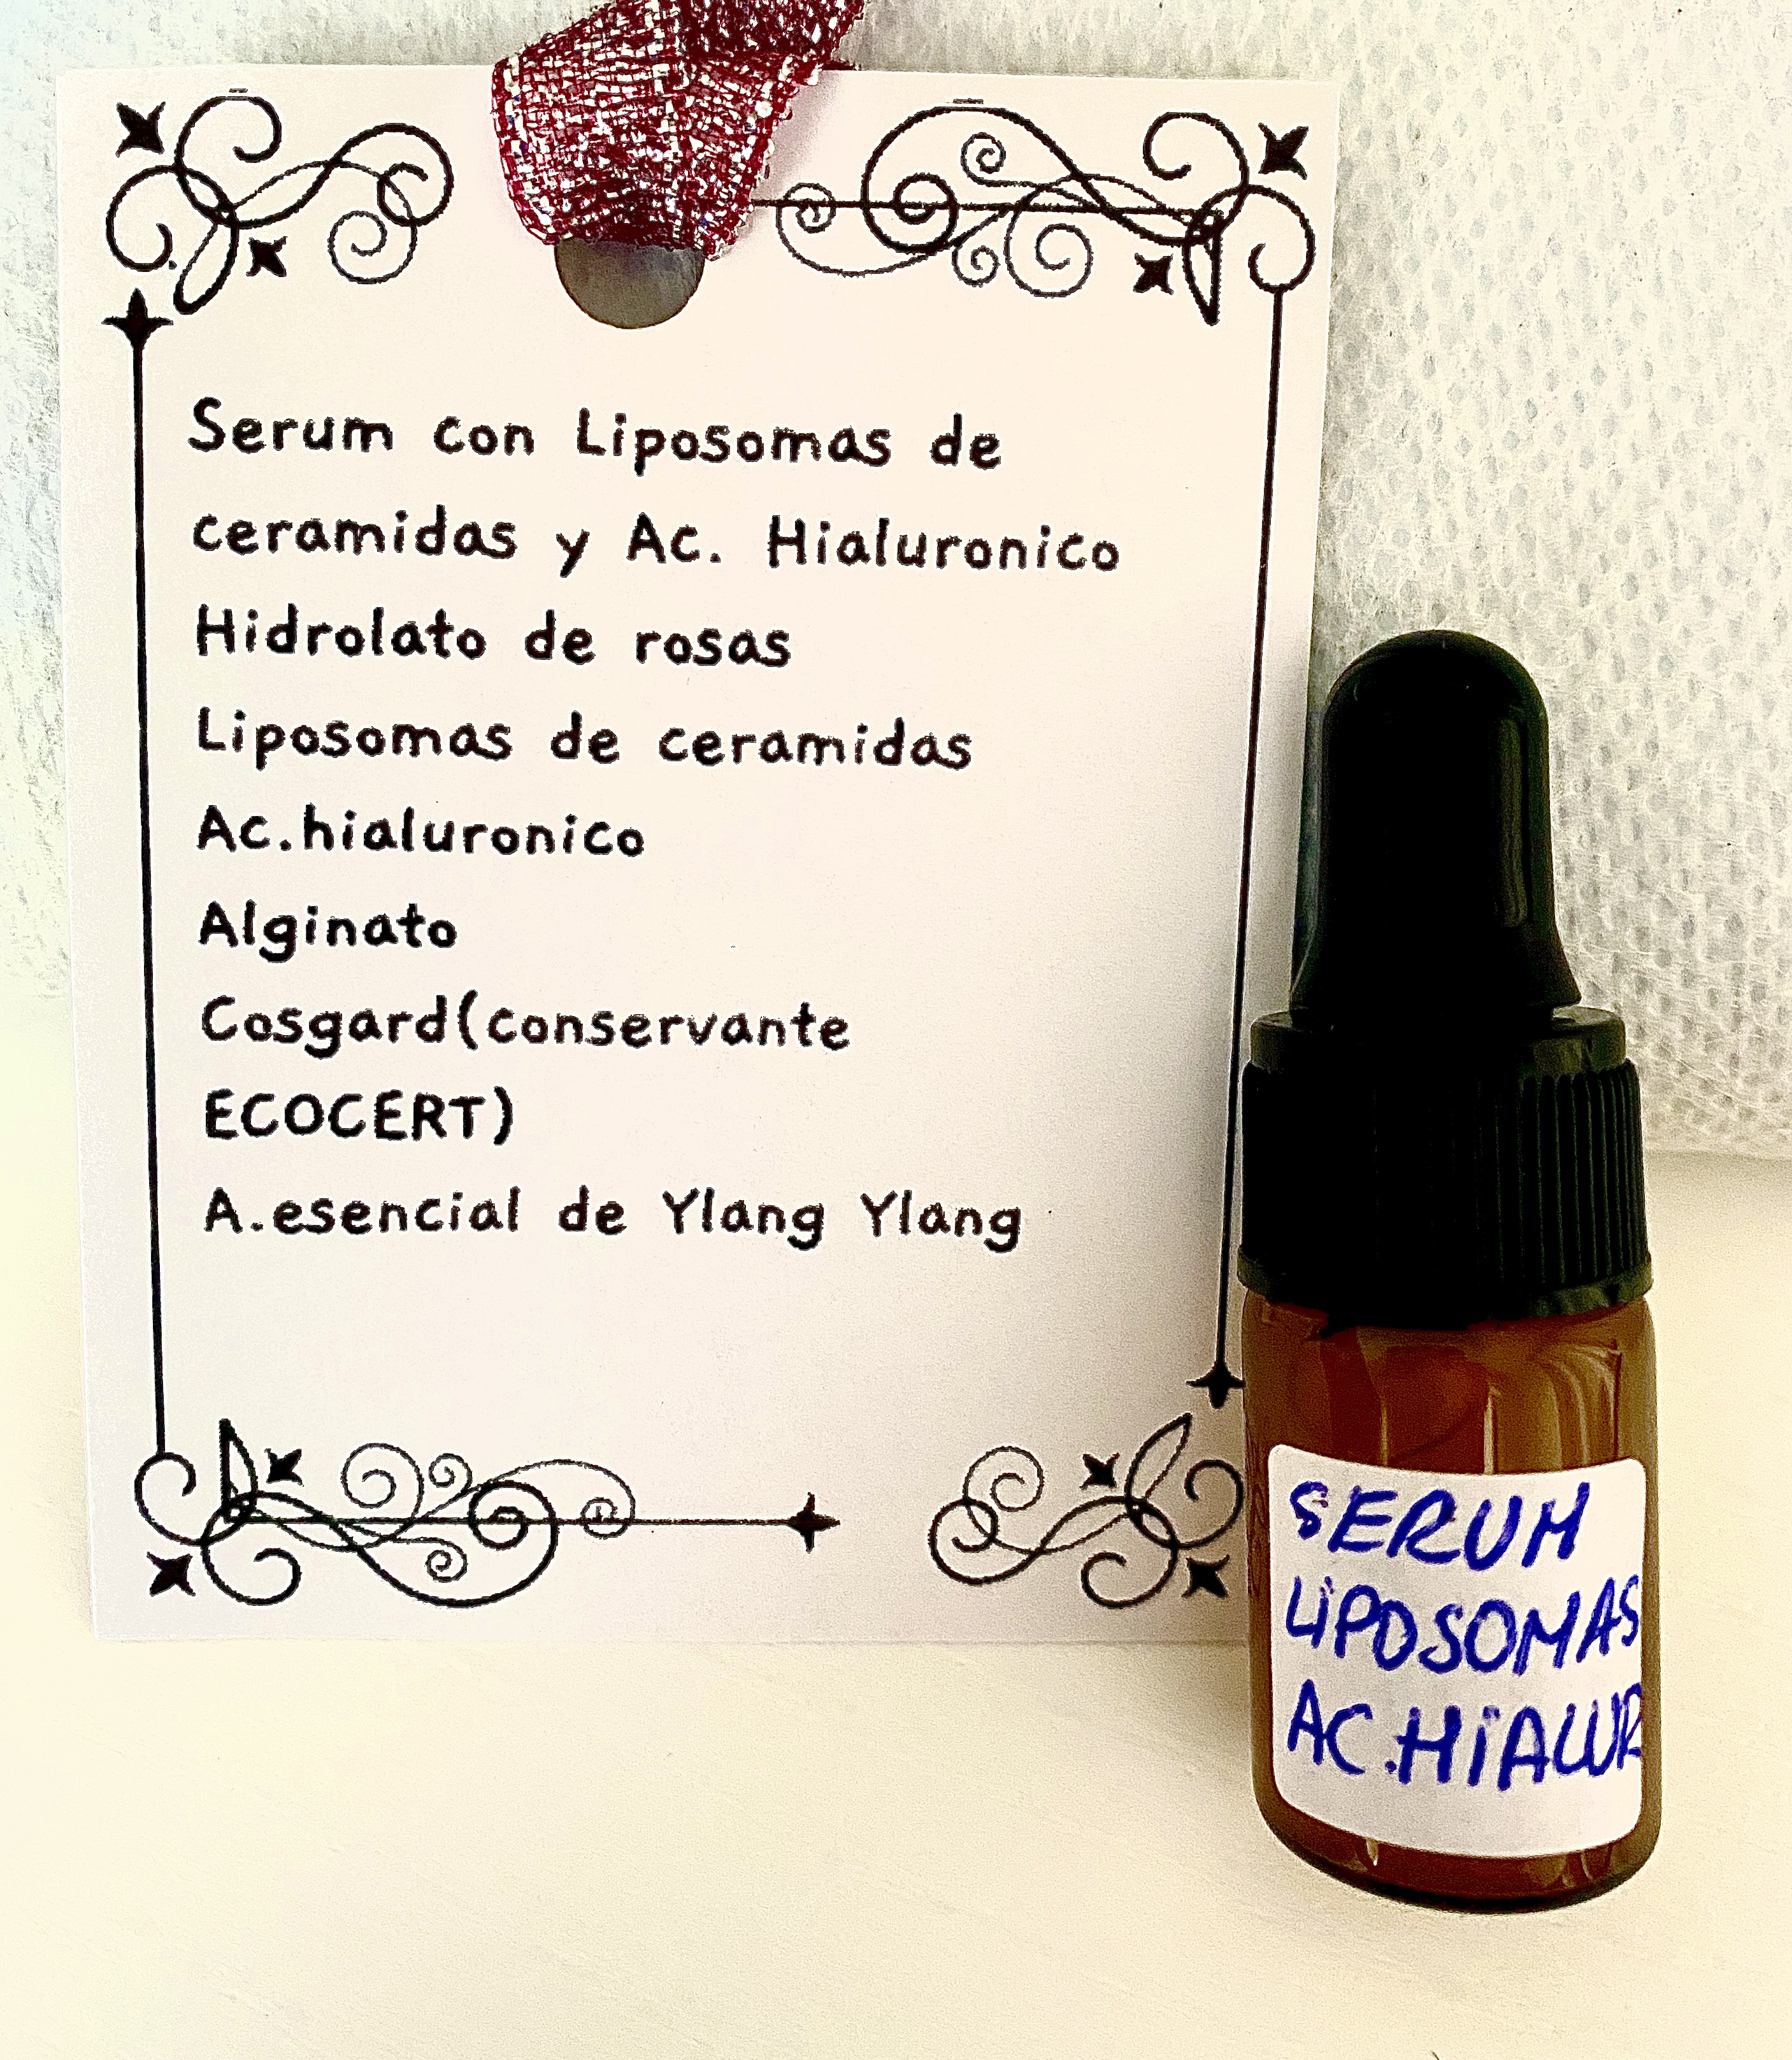 Serum con Liposomas de
ceramidas y Ac. Hialuronico
Hidrolato de rosas
Liposomas de ceramidas
Ac.hialuronico
Alginato
Cosgard(conservante
ECOCERT)
A.esencial de Ylang Ylang
SERUM
LIPOSOMAS
AC.HIALUR